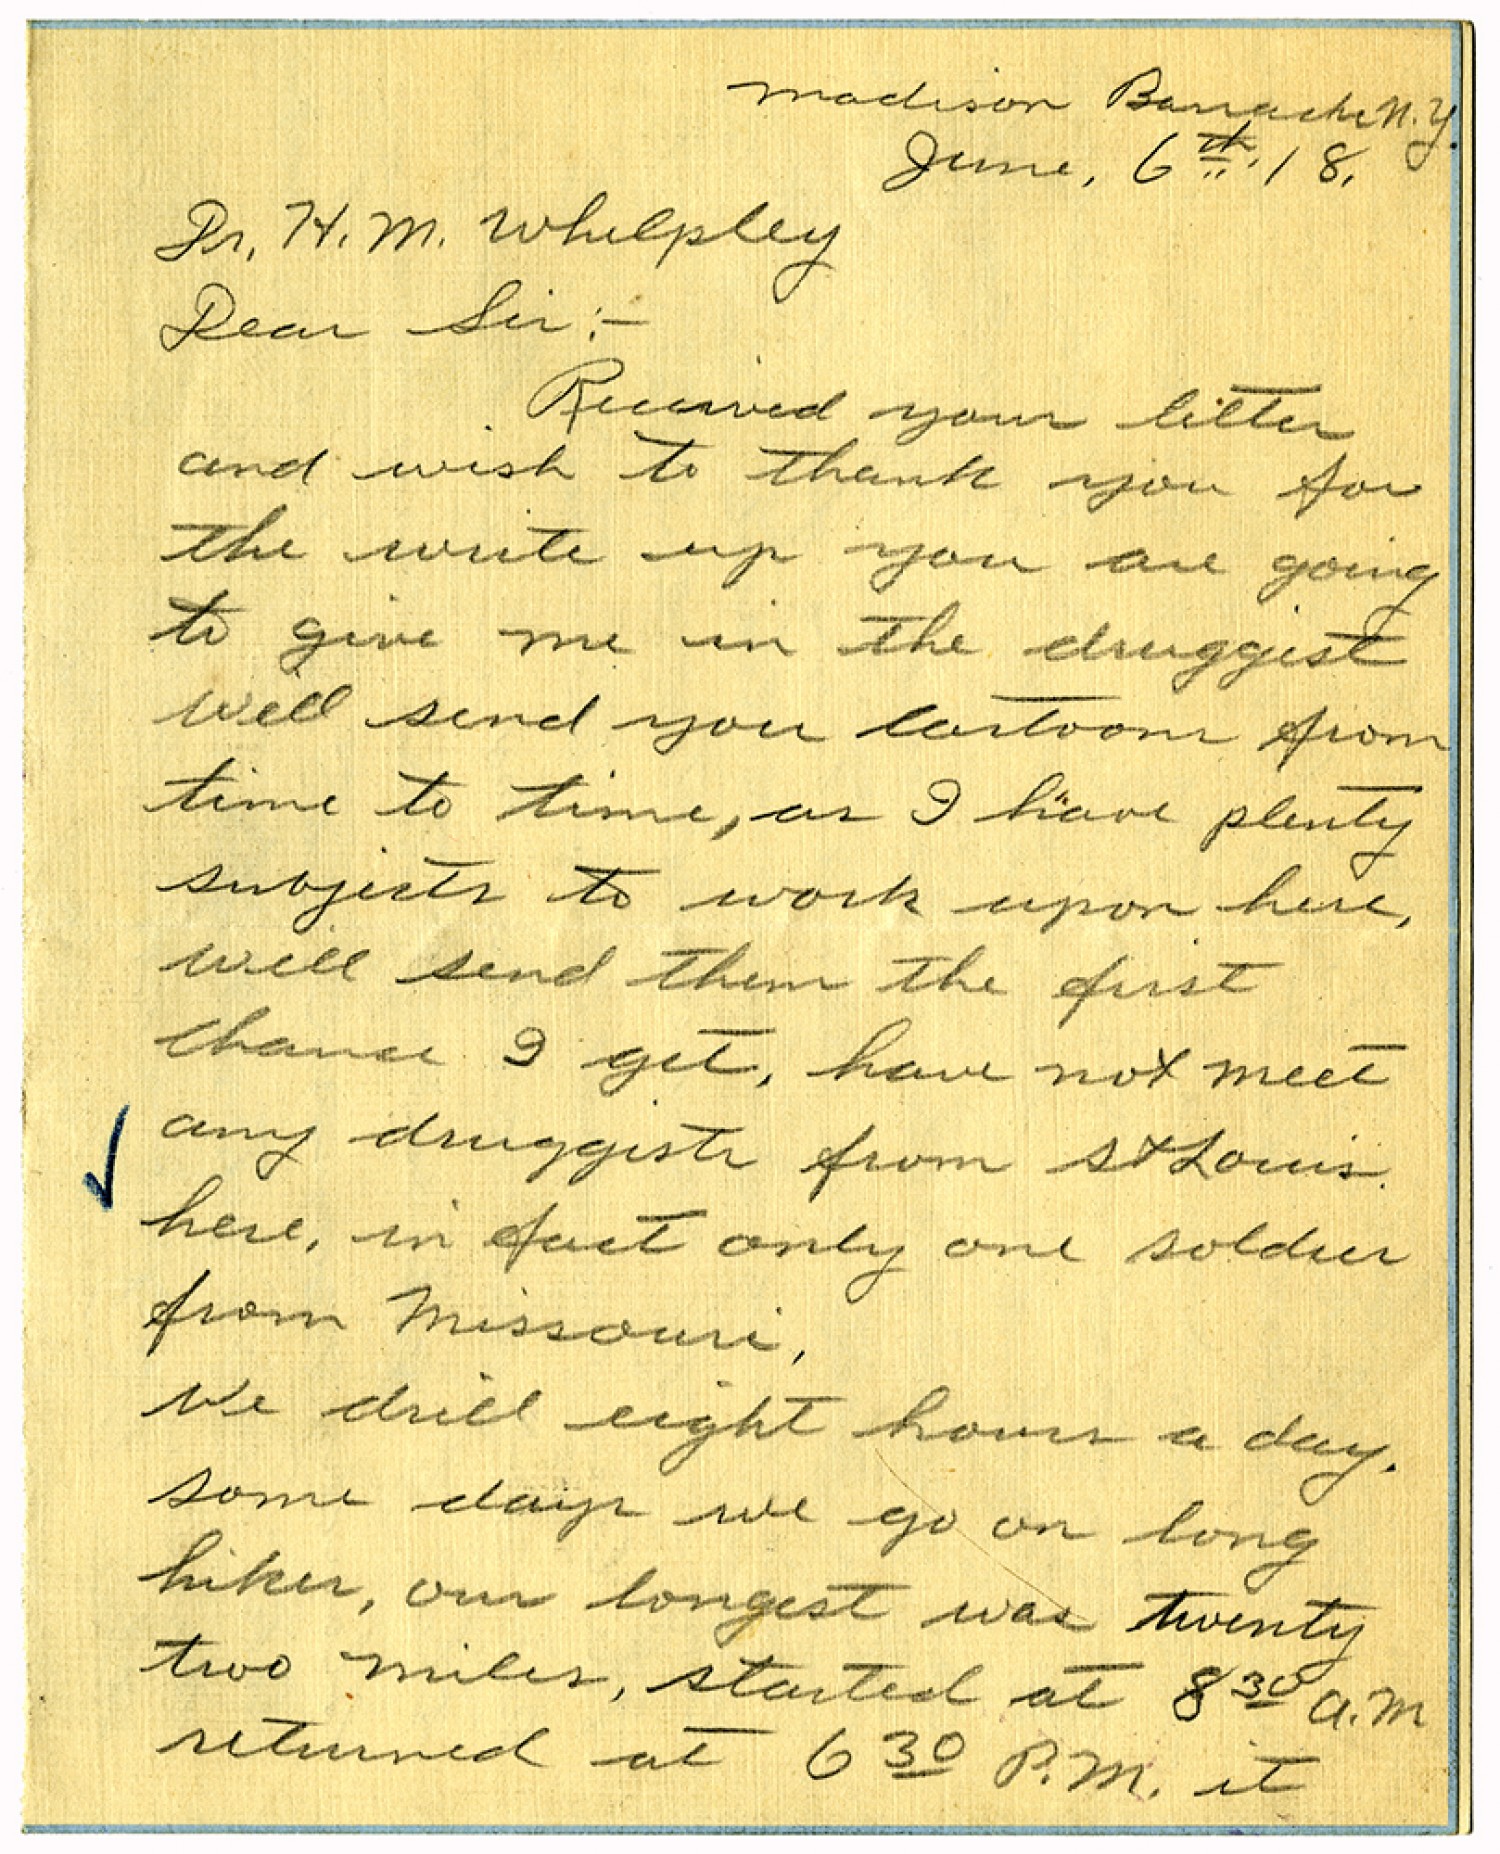 Madison Barracks N.Y.
June, 6th, 18.
Dr. H. M. Whelpley
Dear Sir:-
Received your letter
and wish to thank you for
the write up you are going
to give me in the druggist
will send you cartoons from
time to time, as I have plenty
subjects to work upon here,
will send them the first
chance I get, have not meet
any druggists from St Louis.
here, in fact only one soldier
from Missouri,
We drill eight hours a day.
some days we go on long
hikes, our longest was twenty
two miles, started at 8 30 A.M
returned at 6 30 P.M. it